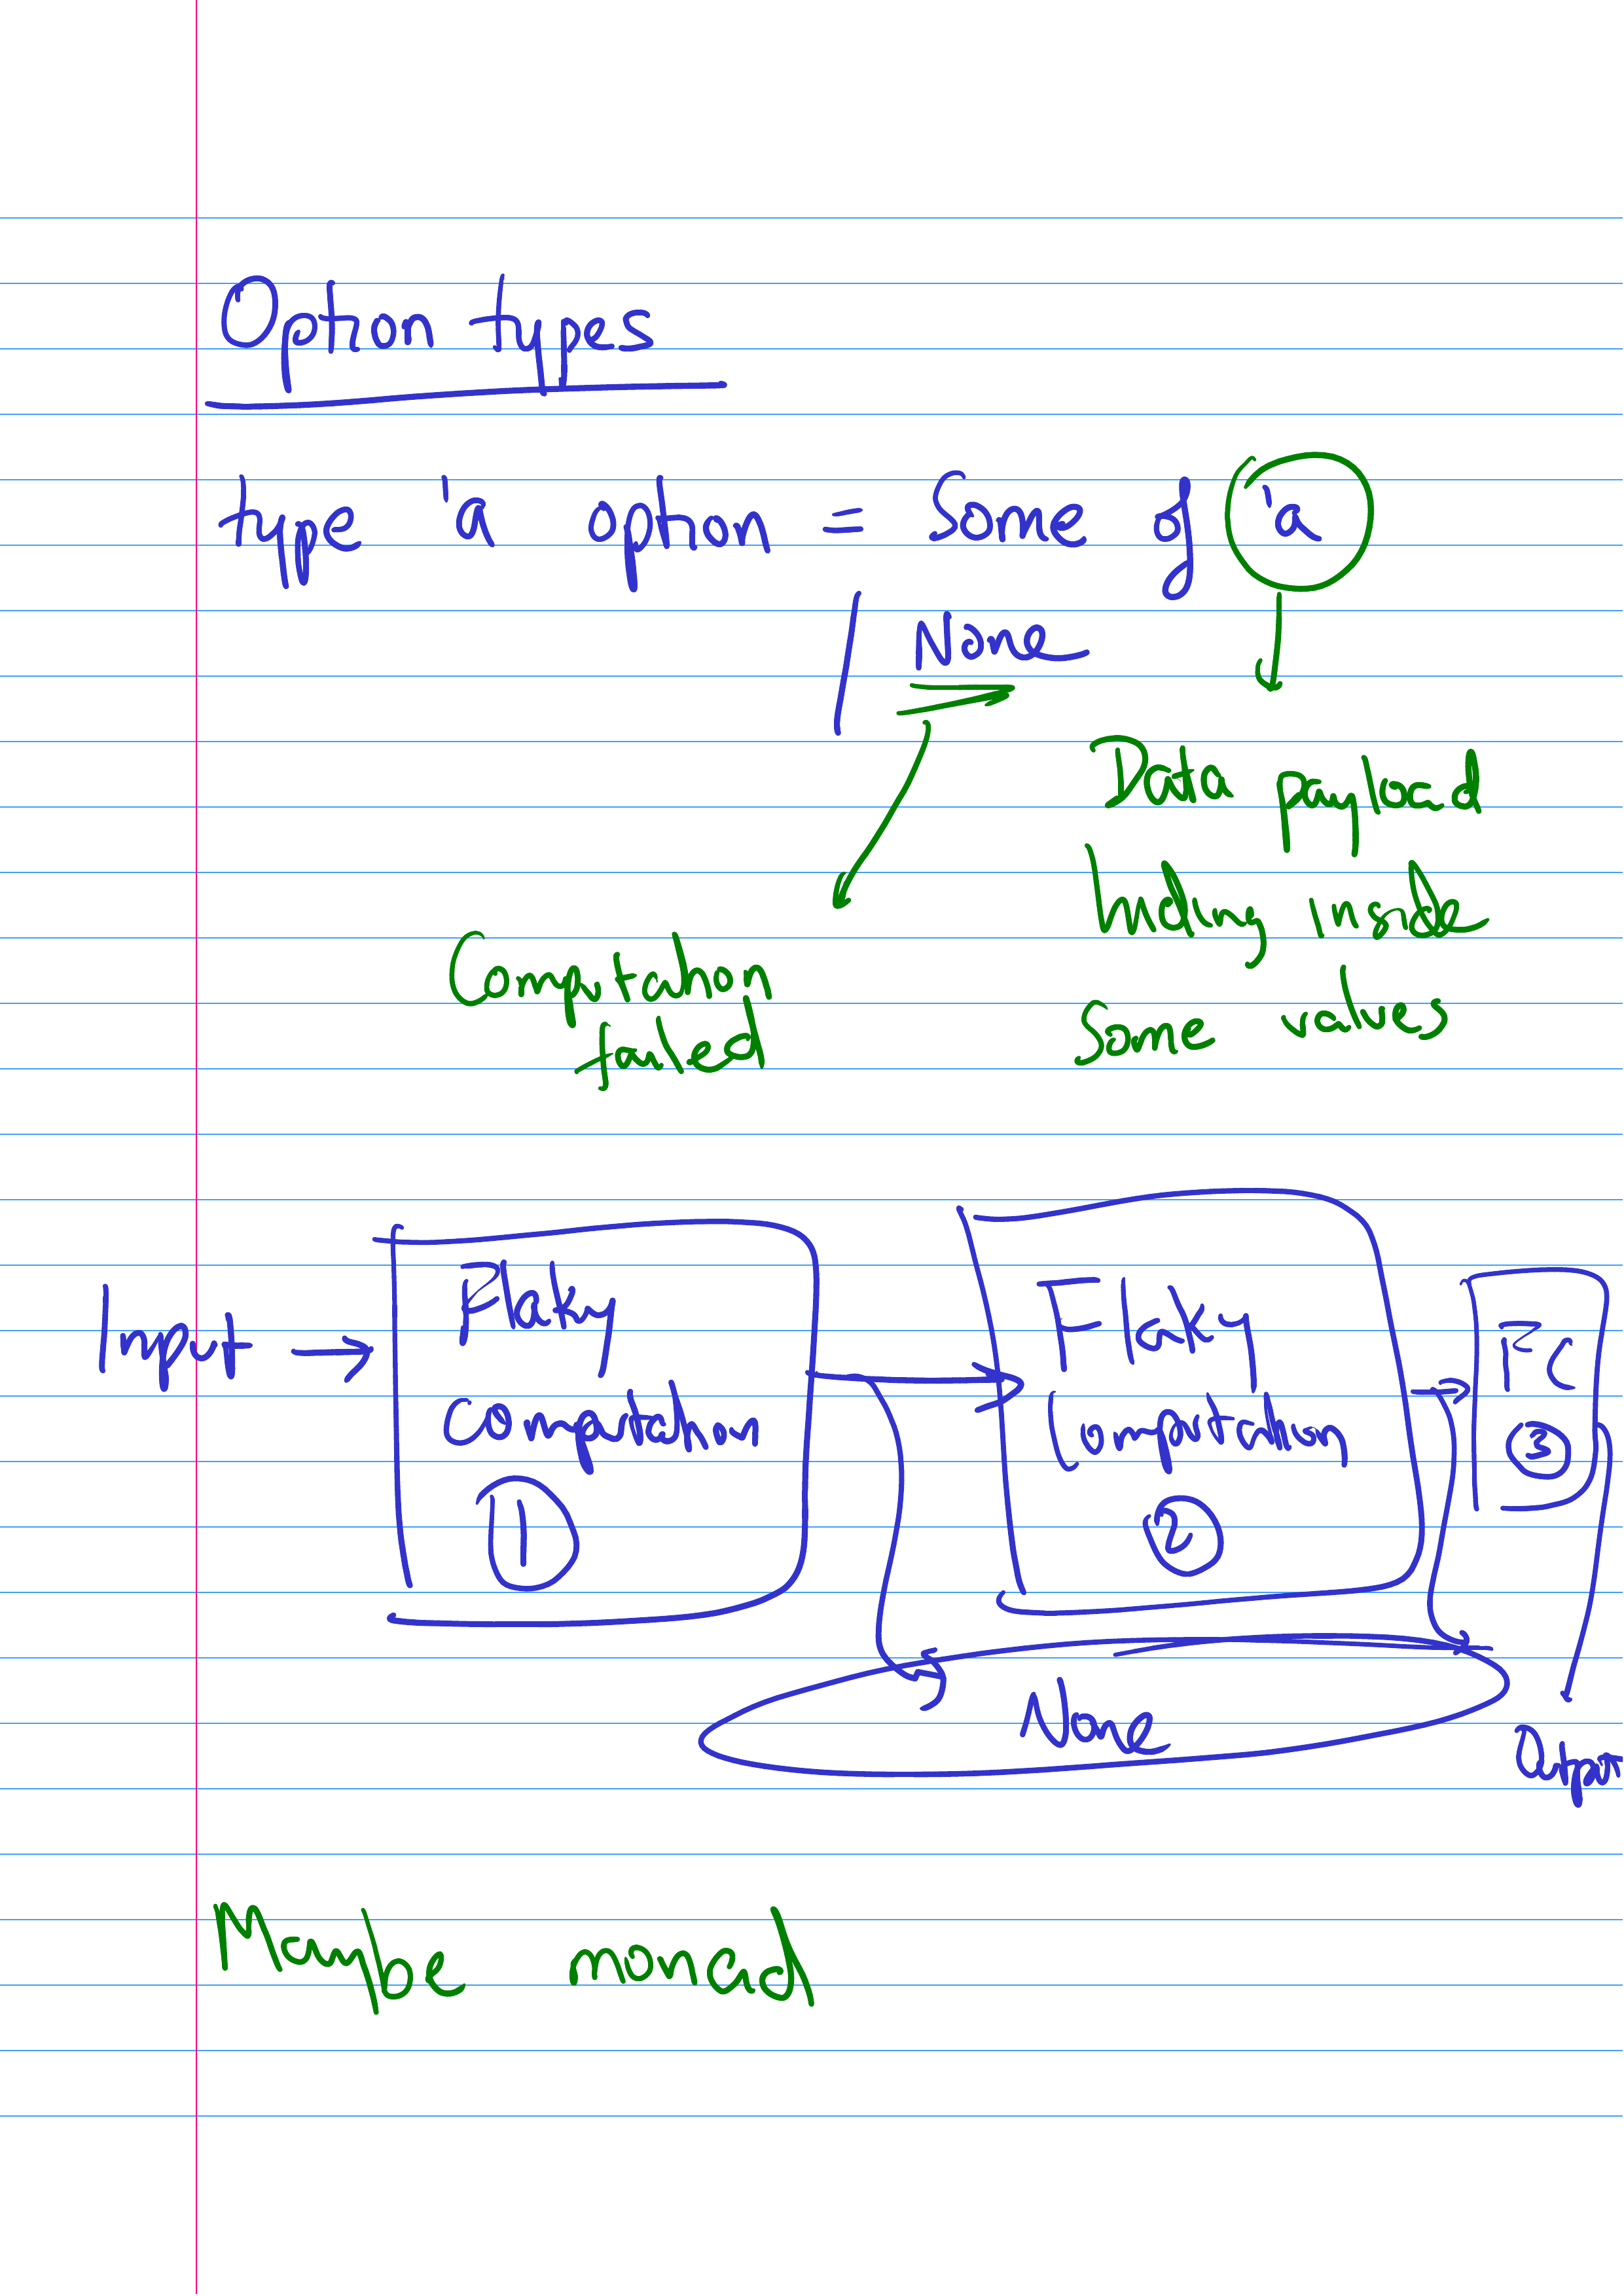 Option types
type 'a option = Some of 'a
| None
Data payload
hiding inside
Some values
Computation
failed
Input → Flaky
Computation
1
Flaky
Computation
2
FC
3
None
Output
Maybe monad